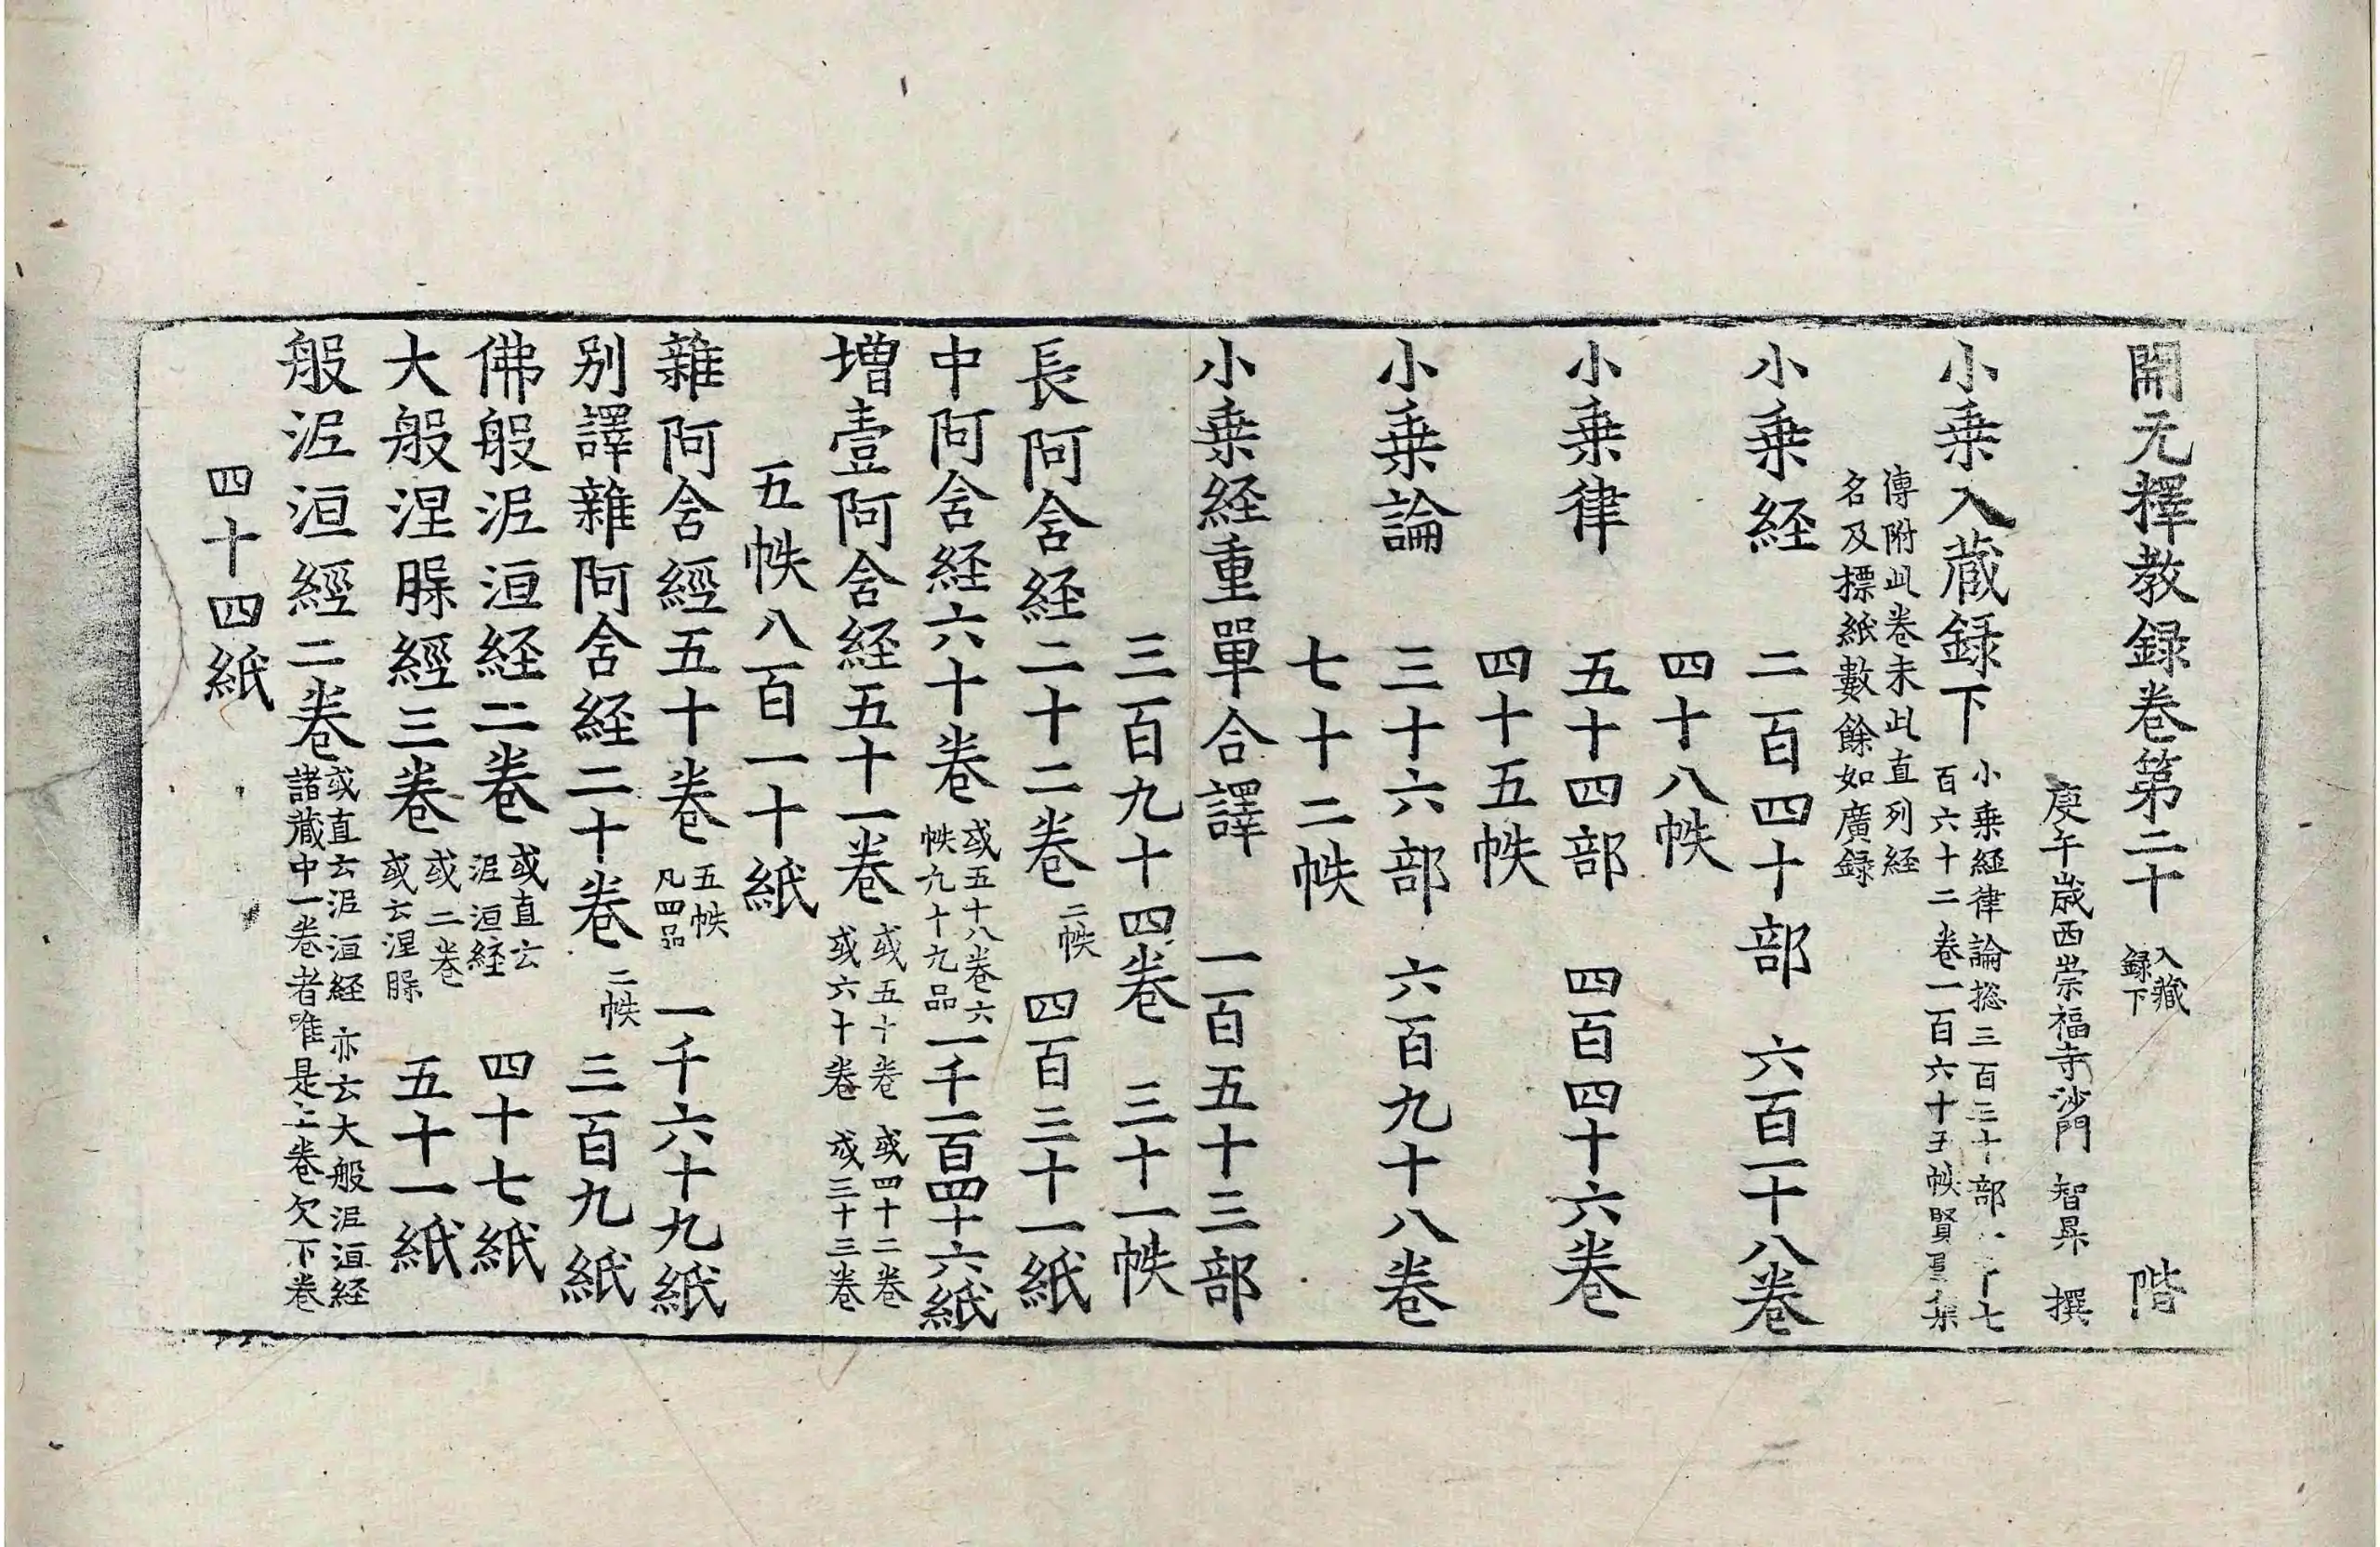 開元釋教録卷第二十 入藏録下 階
庚午歳西崇福寺沙門 智昇 撰
小乗入蔵録下 小乗經律論揔三百三十部 七百六十二卷一百六十五帙賢聖集
傳附此卷末此直列経名及標紙數餘如廣録
小乗経 二百四十部 六百一十八卷
四十八帙
小乗律 五十四部 四百四十六卷
四十五帙
小乗論 三十六部 六百九十八卷
七十二帙
小乗経重單合譯 一百五十三部
三百九十四卷 三十一帙
長阿含経二十二卷 二帙 四百三十一紙
中阿含経六十卷 或五十八卷六帙九十九品 一千一百四十六紙
増壹阿含経五十一卷 或五十卷 或四十二卷 或六十卷 或三十三卷
五帙八百一十紙
雜阿含經五十卷 五帙凡四品 一千六十九紙
别譯雜阿含経二十卷 二帙 三百九紙
佛般泥洹経二卷 或直云泥洹経 四十七紙
大般涅槃經三卷 或二卷或云涅槃 五十一紙
般泥洹經二卷 或直云泥洹経 亦云大般泥洹経諸蔵中一卷者唯是上卷欠下卷
四十四紙